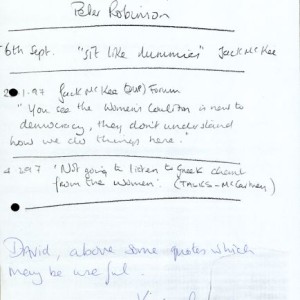 Peter Robinson
6th Sept. "sit like dummies" Jack McKee
1.97 Jack McKee (DUP) Forum
"You see the Women's Coalition is new to
democracy, they don't understand
how we do things here."
2 97 "Not going to listen to Greek chorus
from the women". (TALKS - McCartney)
David, above some quotes which
may be useful.